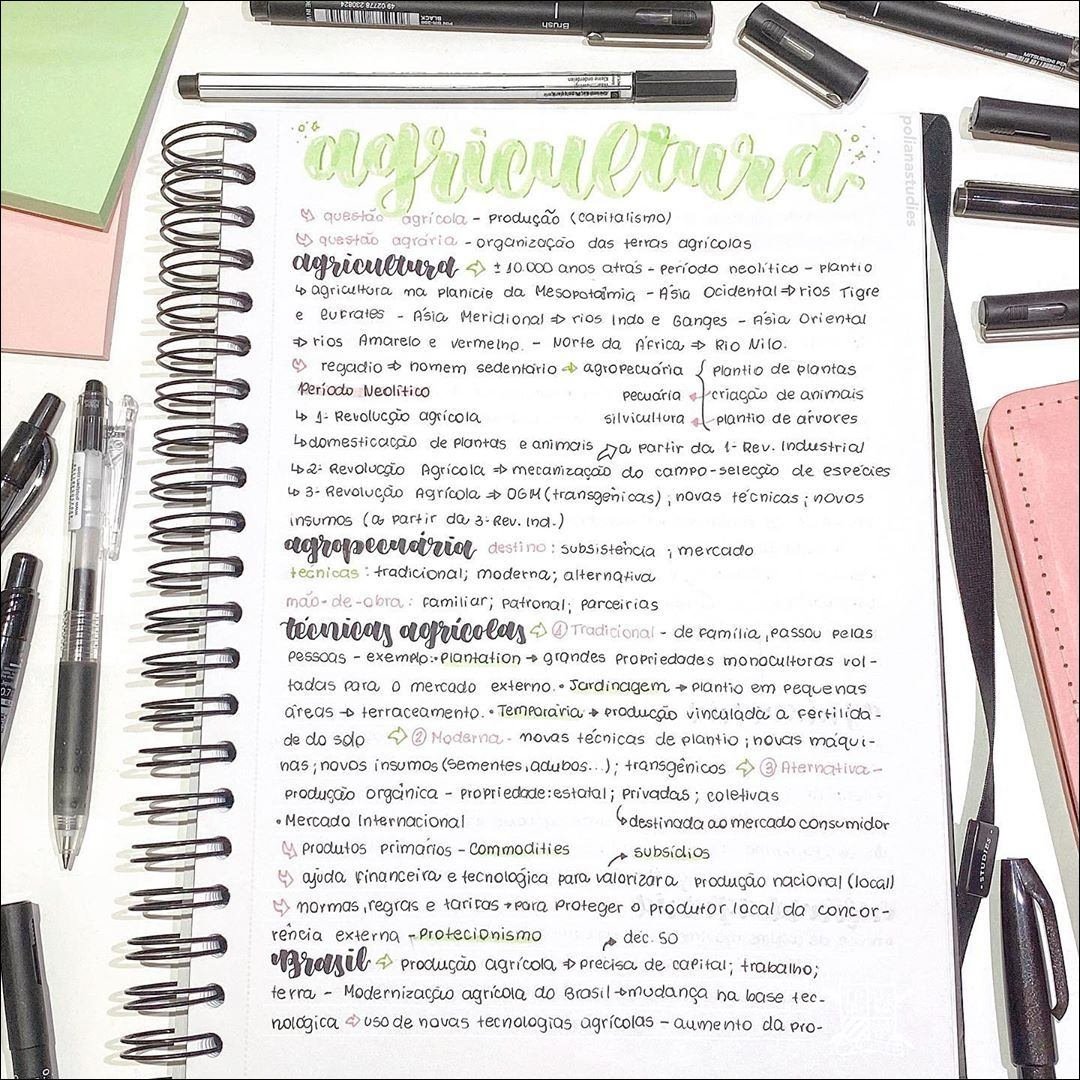 agricultura
polianastudies
↳ questão agrícola - produção (capitalismo)
↳ questão agrária - organização das terras agrícolas
agricultura ⇨ ± 10.000 anos atrás - período neolítico - plantio
↳ agricultura na planície da Mesopotâmia - Ásia Ocidental ⇨ rios Tigre
e Eufrates - Ásia Meridional ⇨ rios Indo e Ganges - Ásia Oriental
⇨ rios Amarelo e vermelho. - Norte da África ⇨ Rio Nilo.
↳ regadio ⇨ homem sedentário → agropecuária { plantio de plantas
Período Neolítico pecuária ← criação de animais
↳ 1ª Revolução agrícola silvicultura ← plantio de árvores
↳ domesticação de plantas e animais ⇨ a partir da 1ª Rev. Industrial
↳ 2ª Revolução Agrícola ⇨ mecanização do campo - selecção de espécies
↳ 3ª Revolução Agrícola ⇨ OGM (transgênicas) ; novas técnicas ; novos
insumos (a partir da 3ª Rev. Ind.)
agropecuária destino : subsistência ; mercado
técnicas : tradicional; moderna; alternativa
mão-de-obra : familiar; patronal; parceirias
técnicas agrícolas ⇨ ① Tradicional - de família, passou pelas
pessoas - exemplo: • plantation → grandes propriedades monoculturas vol-
tadas para o mercado externo. • Jardinagem → plantio em pequenas
áreas → terraceamento. • Temporária → produção vinculada a fertilida-
de do solo ⇨ ② Moderna - novas técnicas de plantio ; novas máqui-
nas ; novos insumos (sementes, adubos...) ; transgênicos ⇨ ③ Aternativa -
produção orgânica - propriedade: estatal; privadas ; coletivas
• Mercado Internacional ↳ destinada ao mercado consumidor
↳ produtos primários - Commodities → subsídios
↳ ajuda financeira e tecnológica para valorizar a produção nacional (local)
⇨ normas, regras e tarifas → para proteger o produtor local da concor-
rência externa - Protecionismo → déc. 50
Brasil ⇨ produção agrícola ⇨ precisa de capital; trabalho;
terra - Modernização agrícola do Brasil → mudança na base tec-
nológica ⇨ uso de novas tecnologias agrícolas - aumento da pro-
Brush
BLACK
49 02778 230824
STUDIES
0.7